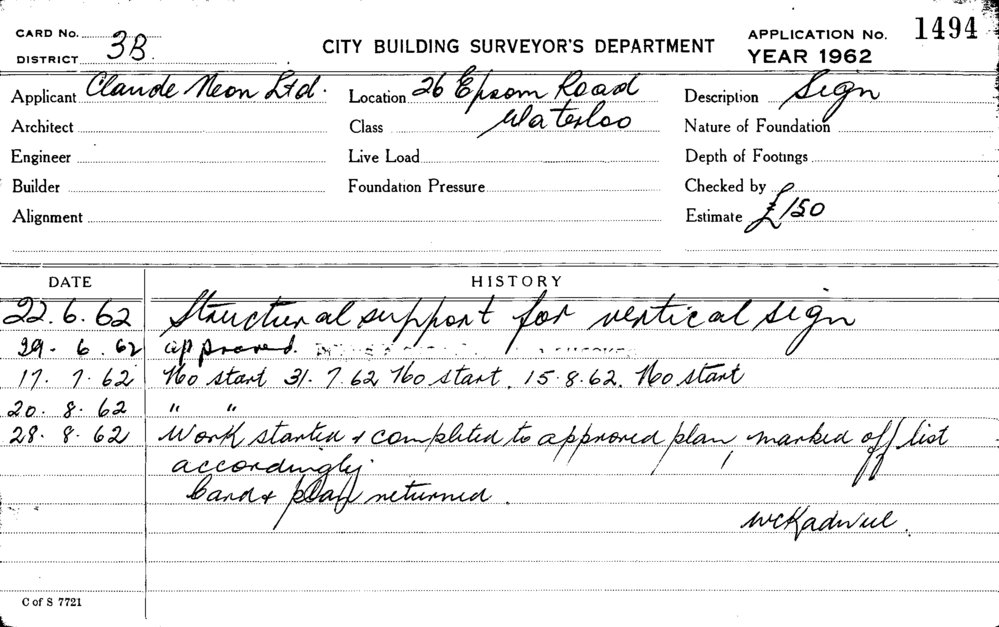 CARD No.
DISTRICT 3B
CITY BUILDING SURVEYOR'S DEPARTMENT
APPLICATION No. 1494
YEAR 1962
Applicant Claude Neon Ltd.
Location 26 Epsom Road
Waterloo
Description Sign
Architect
Class
Nature of Foundation
Engineer
Live Load
Depth of Footings
Builder
Foundation Pressure
Checked by
Alignment
Estimate £150
DATE HISTORY
22.6.62 Structural support for vertical sign
29.6.62 approved.
17.7.62 No start 31.7.62 No start. 15.8.62. No start
20.8.62 " "
28.8.62 Work started & completed to approved plan, marked off list
accordingly.
Card & plan returned.
C of S 7721